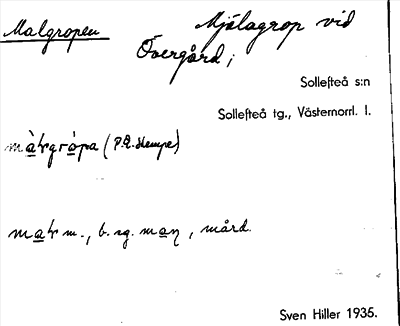 Malgropen Mjölagrop vid
Övergård;
Sollefteå s:n
Sollefteå tg., Västernorrl. l.
màɫgrópa (P.A. Hempe)
maɫ m., b. sg. maɳ, mård.
Sven Hiller 1935.